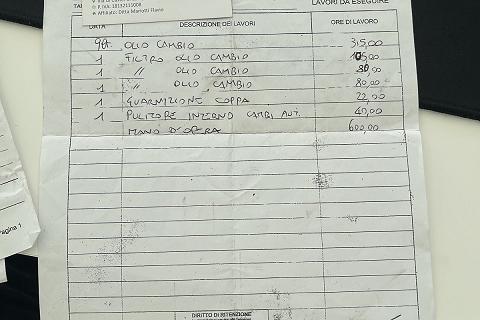 P. IVA: 18132111008
Affiliato: Ditta Mariotti Flavio
LAVORI DA ESEGUIRE
DESCRIZIONE DEI LAVORI ORE DI LAVORO
OLIO CAMBIO 315,00
1 FILTRO OLIO CAMBIO 105,00
1 " OLIO CAMBIO 80,00
1 " OLIO CAMBIO 80,00
1 GUARNIZIONE COPPA 22,00
1 PULITORE INTERNO CAMBI AUT. 40,00
MANO D'OPERA 600,00
Pagina 1
DIRITTO DI RITENZIONE